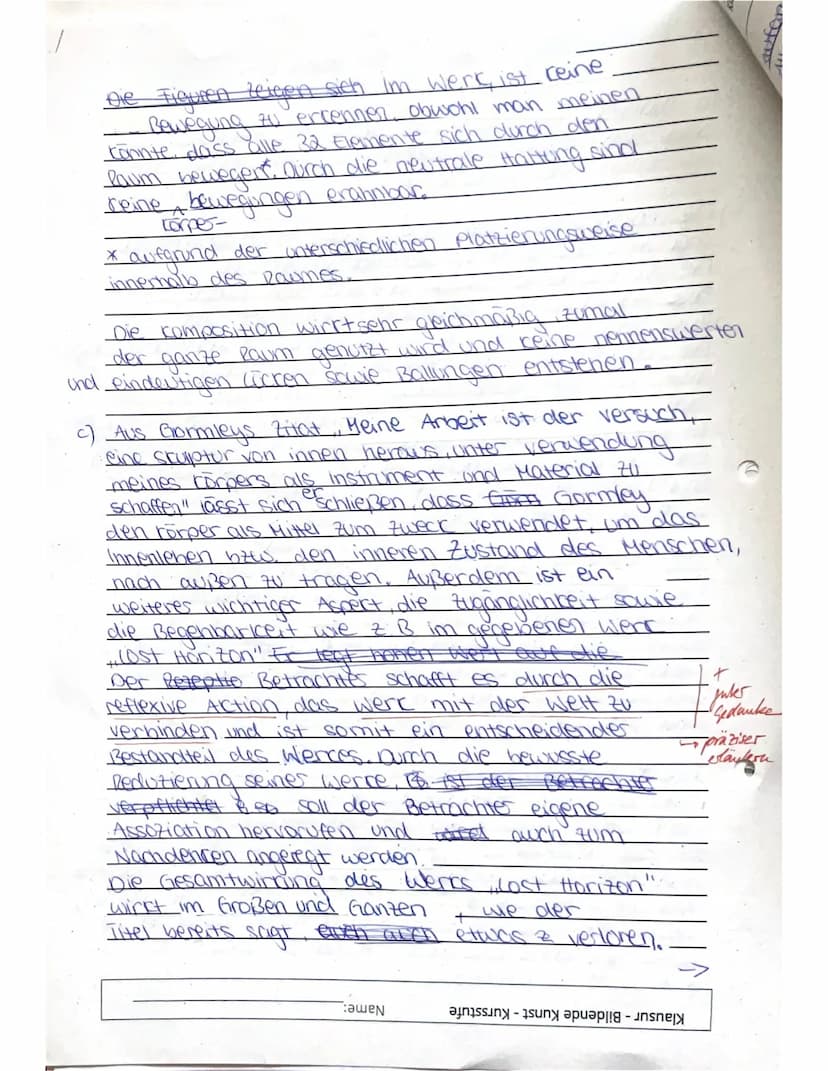 Die Figuren zeigen sich im Werk, ist keine
Bewegung zu erkennen, obwohl man meinen
könnte, dass alle 32 Elemente sich durch den
Raum bewegen*. Durch die neutrale Haltung sind
keine bewegungen erahnbar.
Körper-
* aufgrund der unterschiedlichen Platzierungsweise
innerhalb des Raumes.
Die Komposition wirkt sehr gleichmäßig, zumal
der ganze Raum genutzt wird und keine nennenswerten
und eindeutigen Lücken sowie Ballungen entstehen.
c) Aus Gormleys Zitat „Meine Arbeit ist der Versuch,
eine Skulptur von innen heraus, unter Verwendung
meines Körpers als Instrument und Material zu
schaffen" lässt sich erschließen, dass Gormley
den Körper als Mittel zum Zweck verwendet, um das
Innenleben bzw. den inneren Zustand des Menschen,
nach außen zu tragen. Außerdem ist ein
weiteres wichtiger Aspekt, die Zugänglichkeit sowie
die Begehbarkeit wie z B im gegebenen Werk
„Lost Horizon" Er legt hohen Wert auf die
Der Rezeptio Betrachter schafft es durch die
reflexive Action, das Werk mit der Welt zu
verbinden und ist somit ein entscheidender
Bestandteil des Werkes. Durch die bewusste
Reduzierung seiner Werke, ist der Betrachter
verpflichtet so soll der Betrachter eigene
Assoziation hervorrufen und auch zum
Nachdenken angeregt werden.
Die Gesamtwirkung des Werks „Lost Horizon"
wirkt im Großen und Ganzen, wie der
Titel bereits sagt, auch auch etwas verloren.
+
guter
Gedanke
→ präziser
erläutern
→
Klausur - Bildende Kunst - Kursstufe Name: